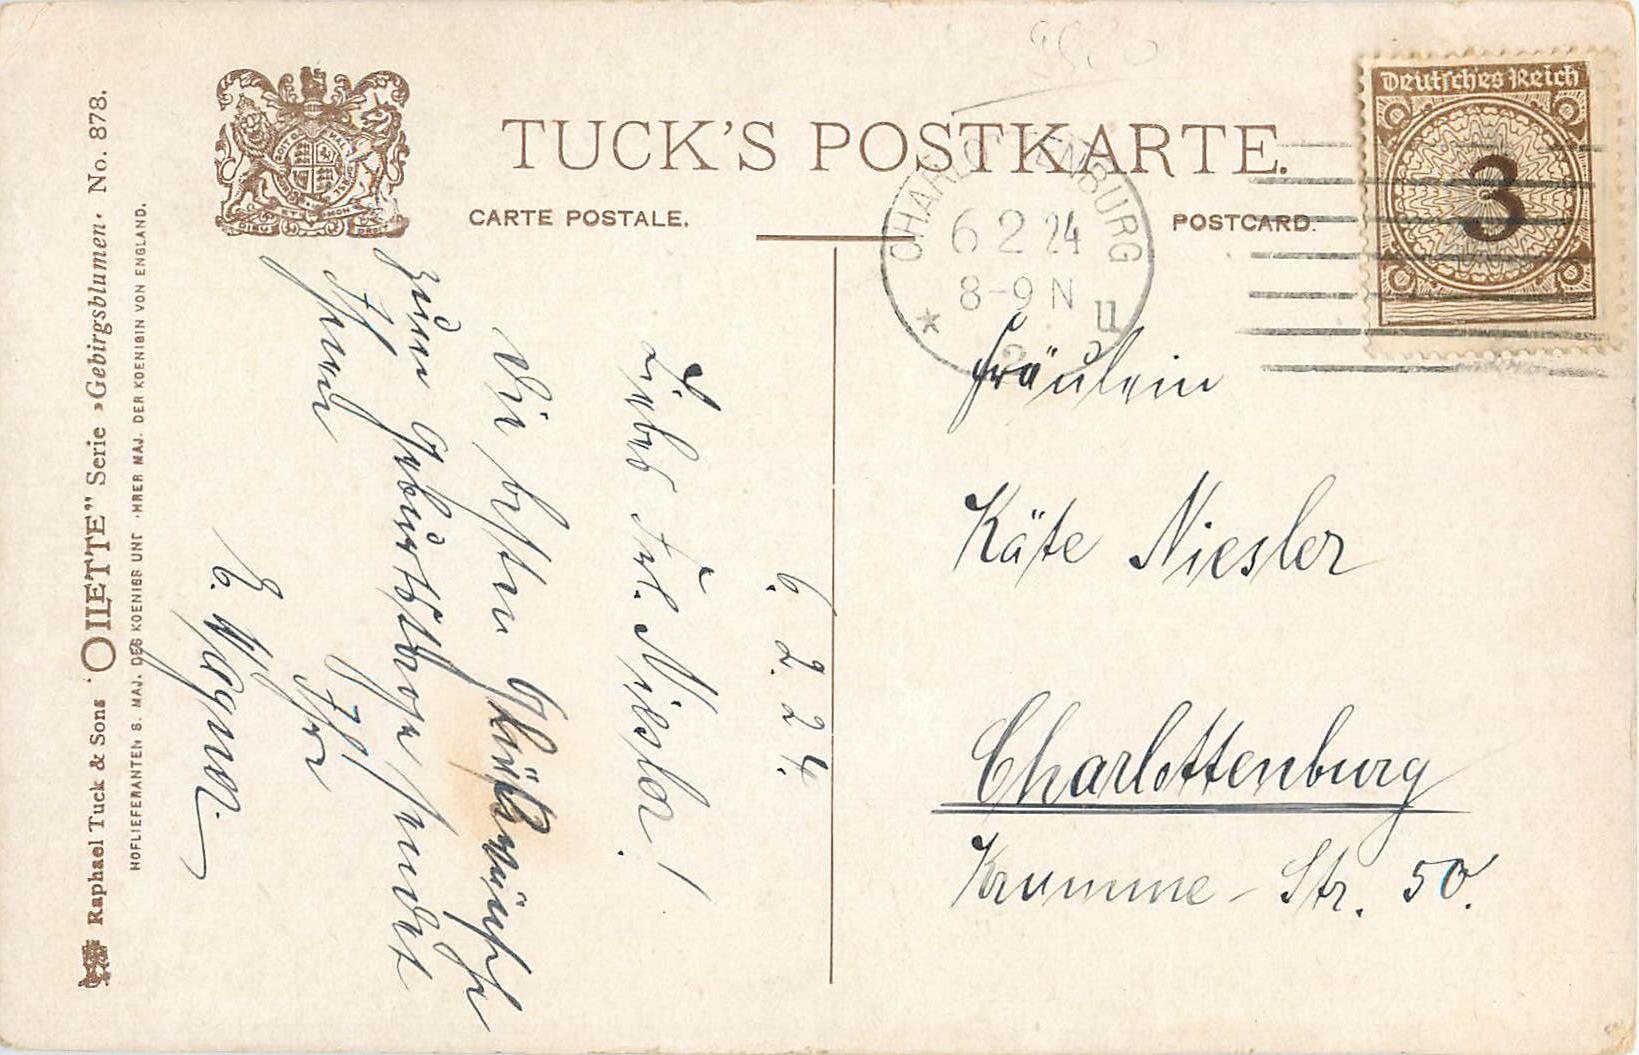 TUCK'S POSTKARTE.
CARTE POSTALE.
POSTCARD.
Deutsches Reich
3
CHARLOTTENBURG
6 2 24
8-9 N
2
Raphael Tuck & Sons' "OILETTE" Serie »Gebirgsblumen« No. 878.
HOFLIEFERANTEN S. MAJ. DES KOENIGS UND IHRER MAJ. DER KOENIGIN VON ENGLAND.
6. 2. 24.
Liebes Frl. Niesler!
Die besten Glückwünsche
zum Geburtstage sendet
Ihnen
Ihr
E. Wegner.
Fräulein
Käte Niesler
Charlottenburg
Krumme-Str. 50.